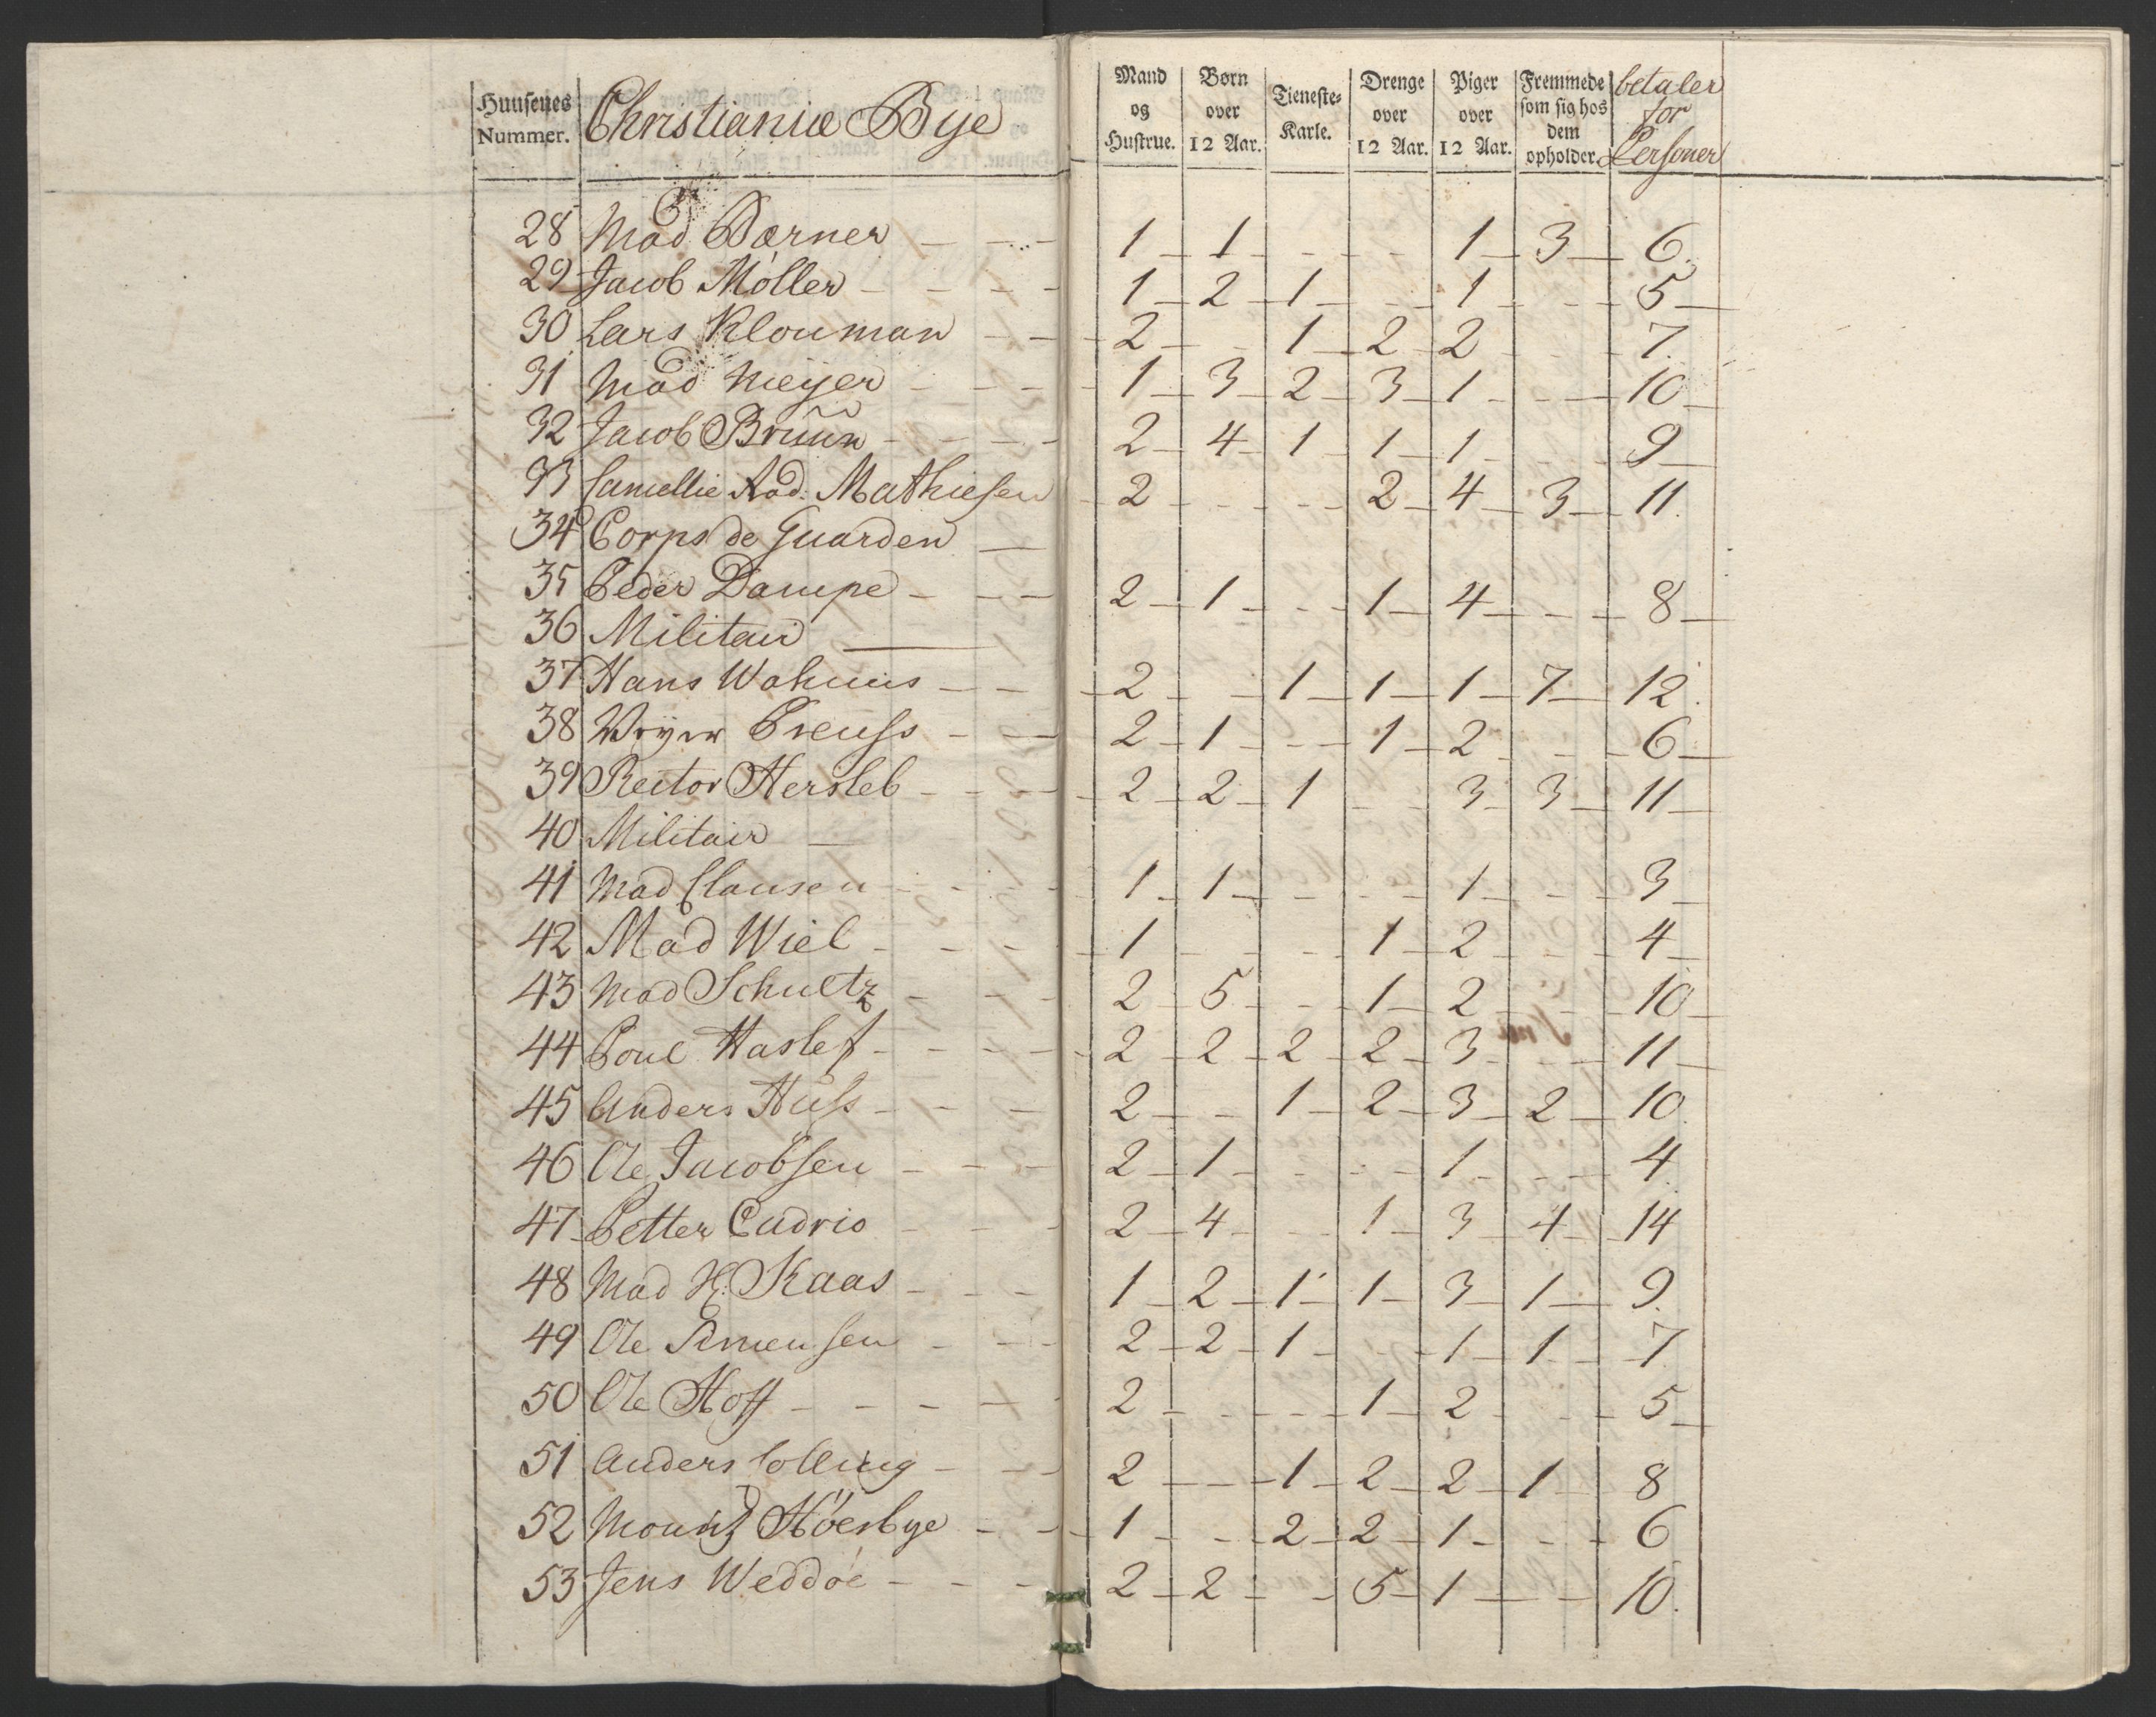 Huusenes Nummer. Christianiæ Bye Mand og Hustrue. Børn over 12 Aar. Tieneste-Karle. Drenge over 12 Aar. Piger over 12 Aar. Fremmede som sig hos dem opholder. betaler for Personer
28 Mad Bærner - - - 1 1 - - 1 3 6.
29 Jacob Möller - - - - 1 2 1 - 1 - 5
30 Lars Klouman - - 2 - 1 2 2 - 7.
31 Mad Meyer - - - - 1 3 2 3 1 - 10
32 Jacob Bruun - - - - 2 4 1 1 1 - 9
33 Cancellie Rad: Mathiesen 2 - - 2 4 3 11.
34 Corps de Guarden -
35 Peder Dampe - - - 2 1 - 1 4 - 8
36 Militair
37 Hans Wahnus - - 2 - 1 1 1 7 12.
38 Preuss - - 2 1 - 1 2 - 6
39 Rector Hersleb - - - 2 2 1 - 3 3 11
40 Militair -
41 Mad Clausen - - - 1 1 - - 1 - 3
42 Mad Wiel - - - 1 - - 1 2 - 4
43 Mad Schultz - - - 2 5 - 1 2 - 10
44 Poul Haslef - - - - 2 2 2 2 3 - 11
45 Anders Huss - - - 2 - 1 2 3 2 10.
46 Ole Jacobsen - - - 2 1 - - 1 - 4.
47 Petter Cudrio - - - 2 4 - 1 3 4 14
48 Mad H. Kaas - - - 1 2 1 1 3 1 9.
49 Ole - - - 2 2 1 - 1 1 7.
50 Ole Hoff - - - - 2 - - 1 2 - 5
51 Anders Colling - - - 2 - 1 2 2 1 8
52 Mouritz Höesbye - - 1 - 2 2 1 - 6
53 Jens Weddöe - - - 2 2 - 5 1 - 10.